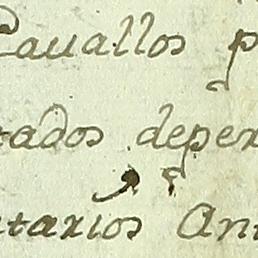 Cauallos p
tados deper
tarios An